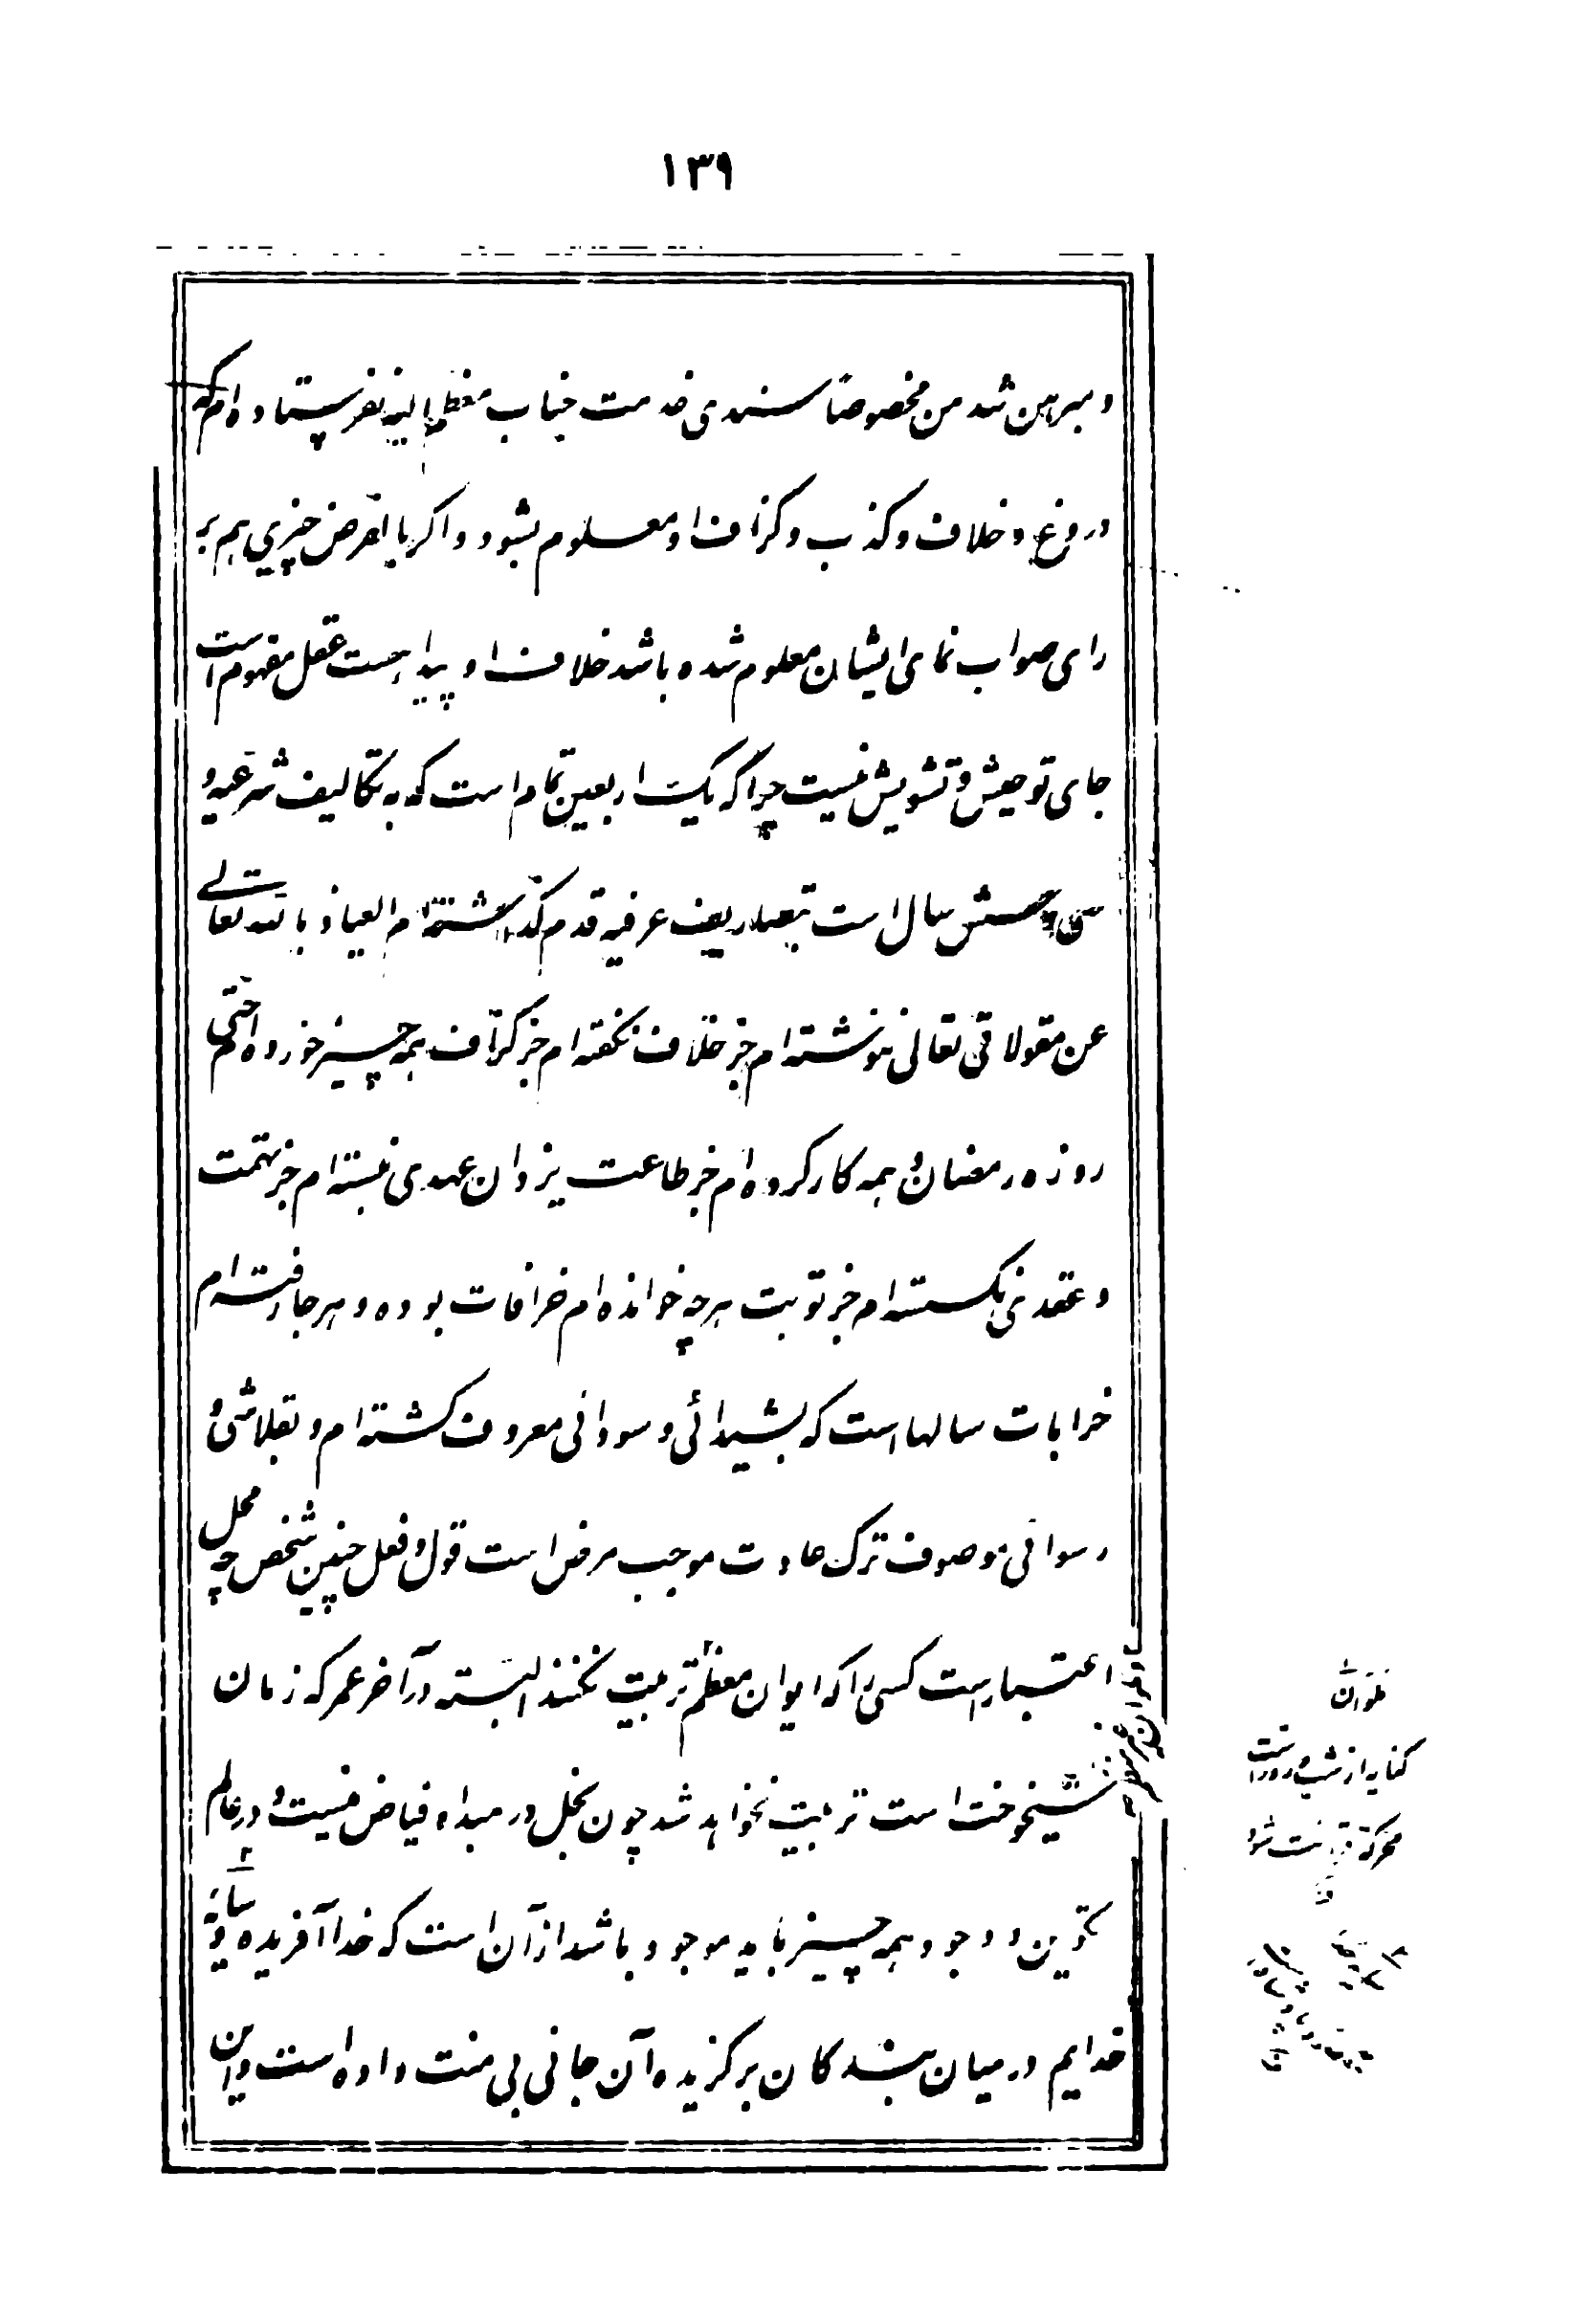 ۱۳۹
و مبرهن شد من مخصوصاً سندی خدمت جناب معظم الیه نفرستاده ام که
دروغ و خلاف و کذب و گزاف او معلوم بشود و اگر بالفرض چیزی هم بر
رای صواب نمای ایشان معلوم شده باشد خلاف او ببداهت عقل مفهوم است
جای توحیش و تشویش نیست چرا که یک اربعین تمام است که به تکالیف شرعیه و
سی و شش سال است بتصاریف عرفیه قدم گذاشته ام العیاذ بالله تعالی
عن مقولاتی تعالی ننوشته ام جز خلاف نگفته ام جز گزاف همه چیز خورده ام حتی
روزه رمضان و همه کار کرده ام جز طاعت یزدان عهدی نبسته ام جز بتهمت
و عقدی نگسسته ام جز توبت هرچه خوانده ام خرافات بوده و هر جا رفته ام
خرابات سالها است که بشیدائی و سودائی معروف گشته ام و بقلاشی و
رسوائی موصوف ترک عادت موجب مرض است قول و فعل چنین شخص چه محل
اعتبار است کسی را که ایوان معظم تربیت نکنند البته در آخر عمر که زمان
شیخوخت است تربیت نخواهد شد چون بخل در مبداء فیاض نیست و در عالم
تکوین و وجود همه چیز باید موجود باشد از آن است که خدا آفریده و
خدایم در میان بندگان برگزیده آن جانی بی منت داده است و این
ملوان
کنایه از شب و روز است
محرکة